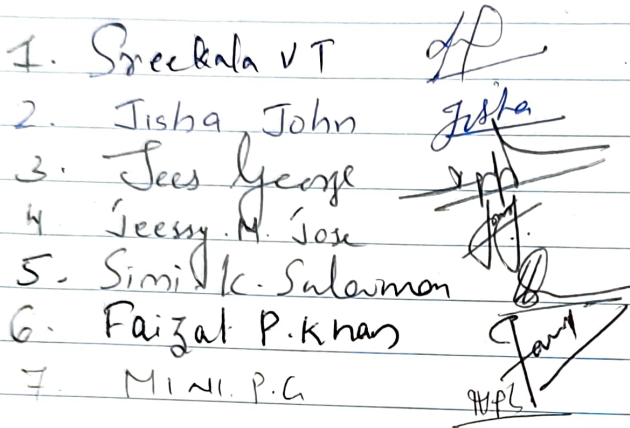 1. Sreekala V T
2. Jisha John Jisha
3. Jees George
4 Jeessy. M. Jose
5. Simi K. Sulaiman
6. Faizal P. Khan
7. MINI. P. G